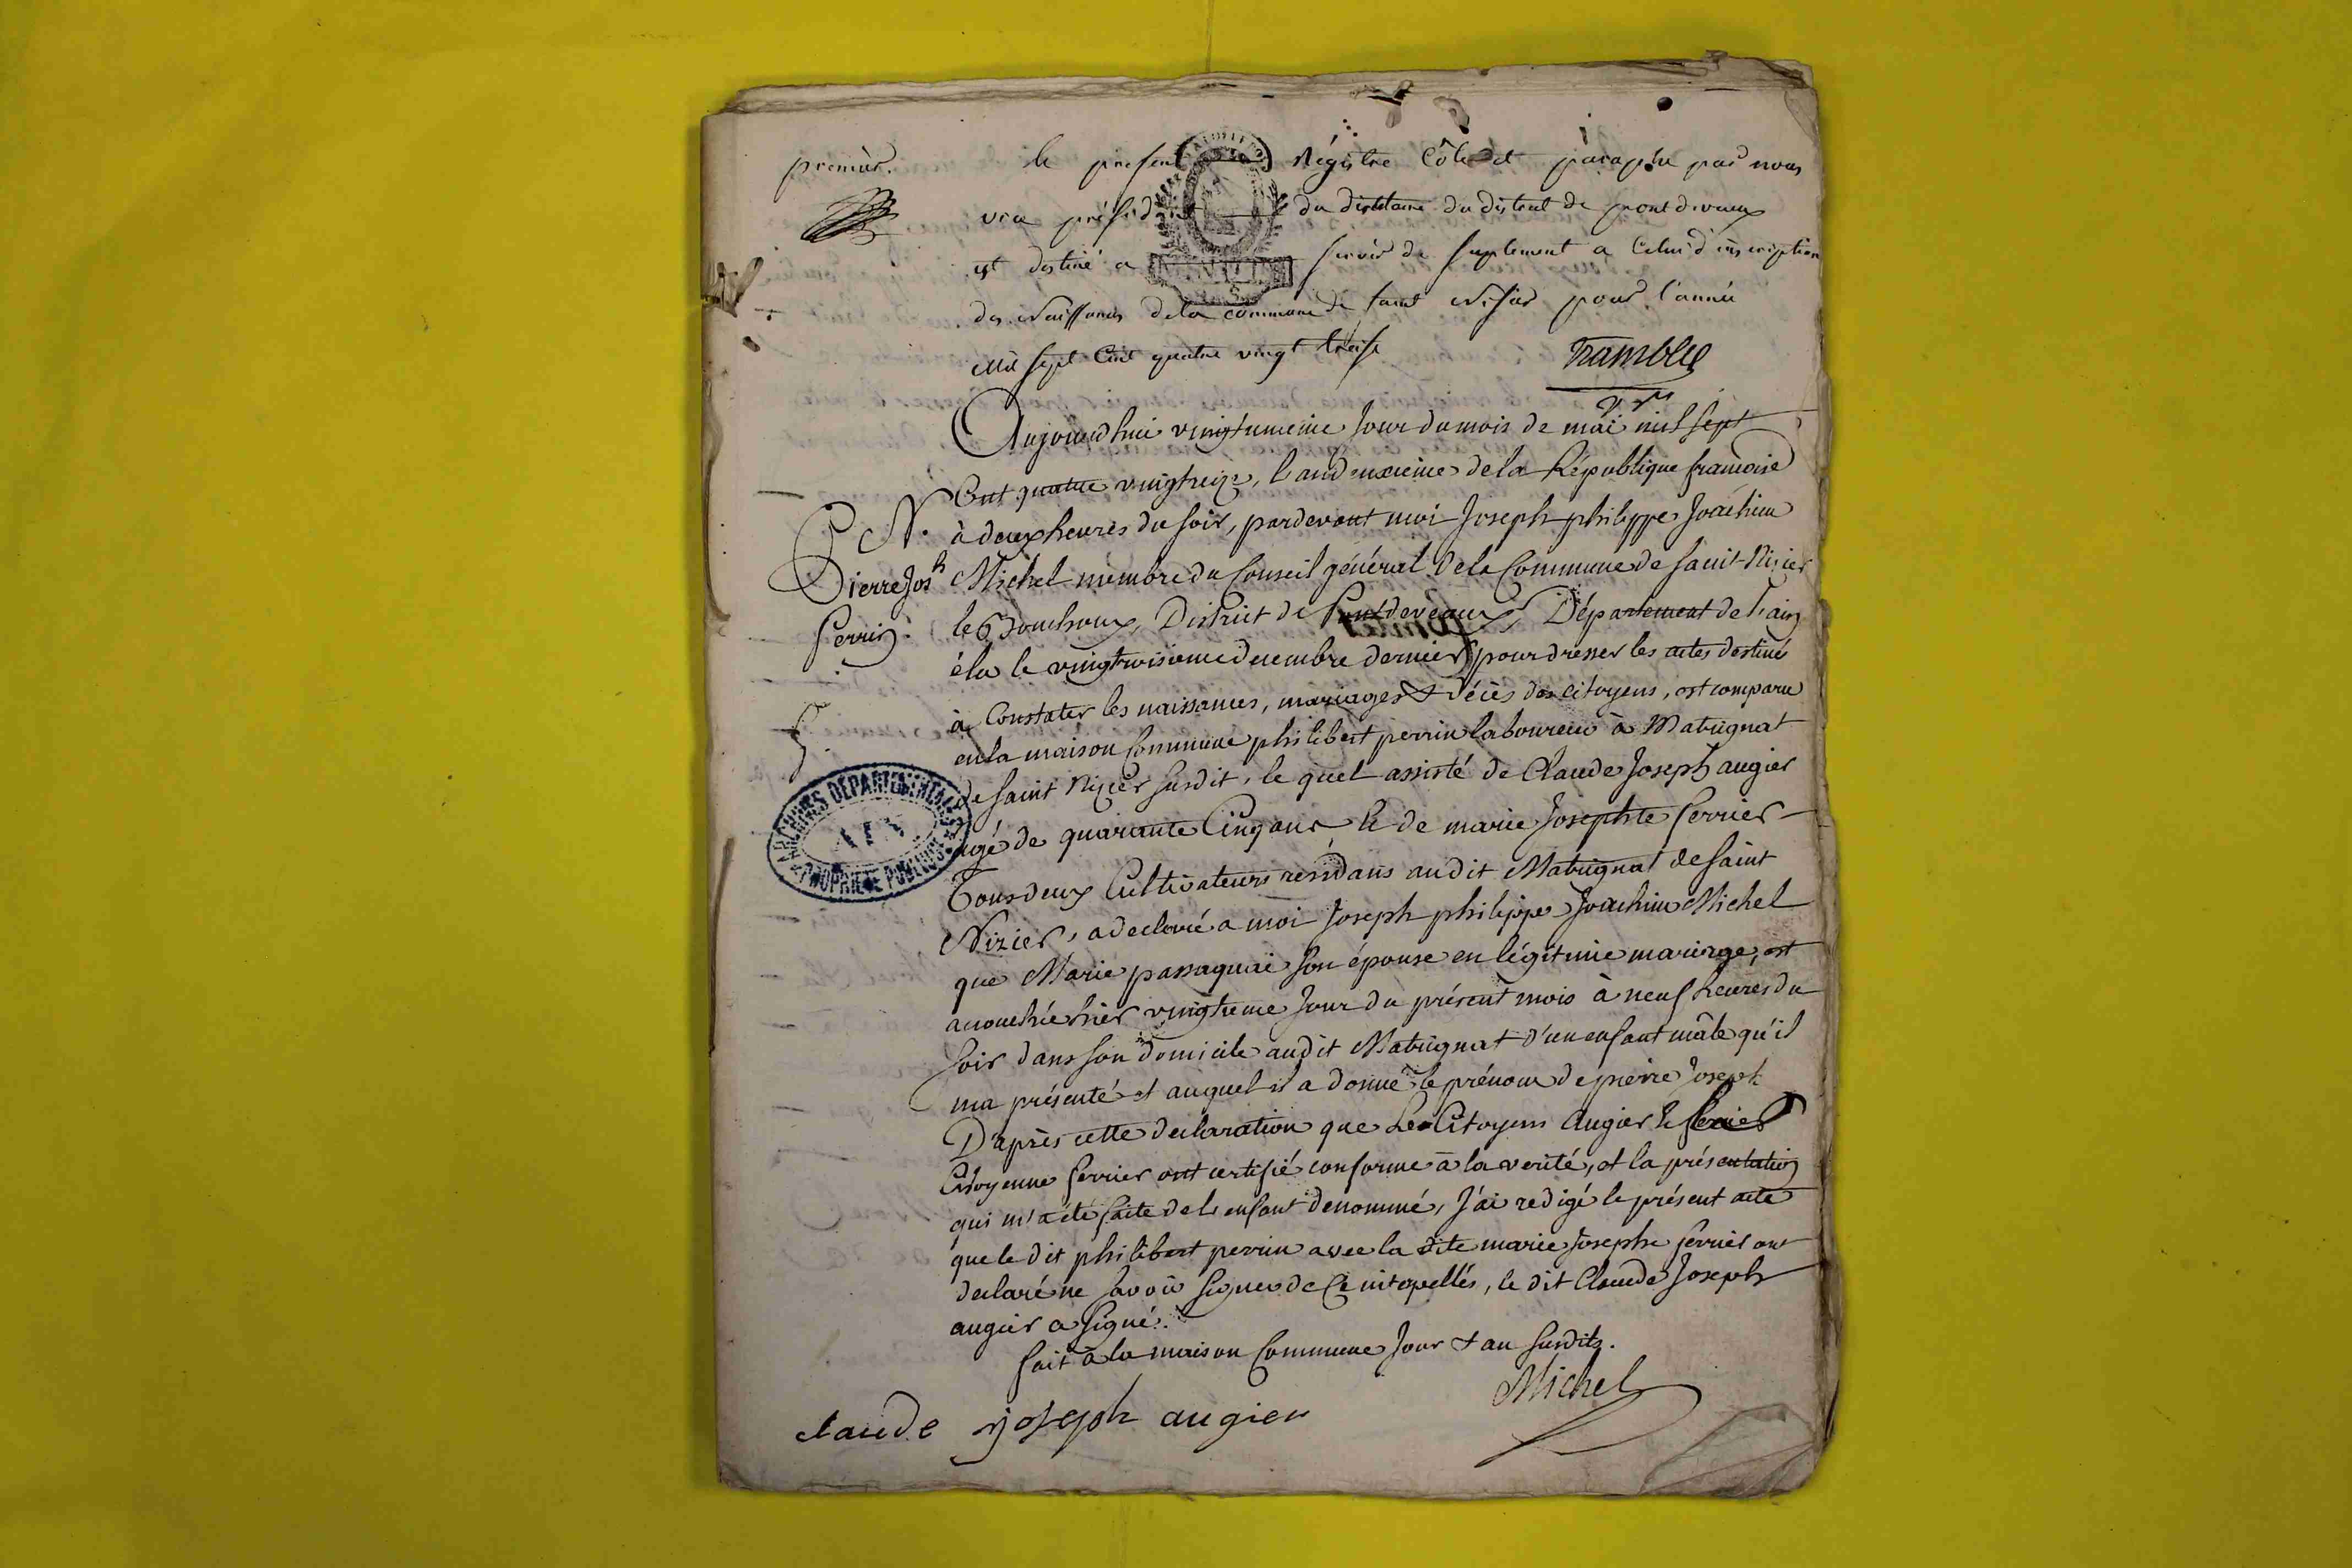 premier.
le present Régistre Côté et paraphé par nous
vice président du directoire du district de pontdevaux
est destiné a servir de suplement a Celui d'inscription
des Naissances dela commune de saint Nisier pour l'année
Mil sept Cent quatre vingt treise
Tramblu
Aujourdhui vingtunieme Jour du mois de mai mil sept
Cent quatre vingtreize, l'an deuxieme dela République francoise
à deux heures du soir, pardevant moi Joseph philippe Joachim
Michel membre du Conseil général dela Commune de saint-Nizier
le Bouchoux, District de Pontdeveaux, Département de l'ain
élu le vingtroisieme decembre dernier pour dresser les actes destinés
à Constater les naissances, mariages & décès des citoyens, est comparu
en la maison Commune philibert perrin laboureur à Matrignat
de saint Nizier susdit, le quel assisté de Claude Joseph augier
agé de quarante Cinq ans & de marie Josephte ferrier
Tous deux Cultivateurs résidans au dit Matrignat de saint
Nizier, a declaré a moi Joseph philippe Joachim Michel
que Marie passaquai son épouse en légitime mariage, est
acouchée hier vingtieme Jour du présent mois à neuf heures du
soir dans son domicile audit Matrignat d'un enfant mâle qu'il
ma présenté et auquel il a donné le prénom de pierre Joseph
D'après cette declaration que Les Citoyens Augier &
Citoyenne ferrier ont certifié conforme à la verité, et la présentation
qui m'a été faite de l'enfant denommé, J'ai redigé le présent acte
que le dit philibert perrin avec la dite marie Josephe ferrier ont
declaré ne savoir signer de Ce intepellés, le dit Claude Joseph
augier a signé.
fait à la maison Commune Jour & an susdits.
Michel
claude joseph augier
N.
Pierre Josh
Perrin.
ARCHIVES DEPARTEMENTALES
AIN
PROPRIETE PUBLIQUE